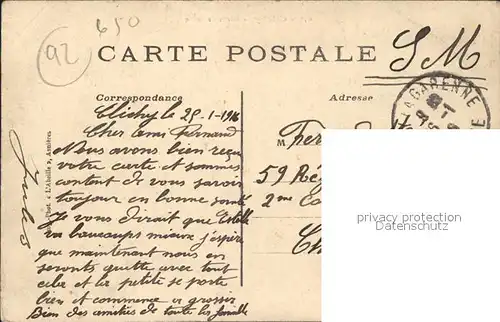 650
92
CARTE POSTALE
S M
Correspondance
Adresse
LA GARENNE
Clichy le 25-1-916
Cher ami Fernand
Nous avons bien reçu
votre carte et sommes
content de vous savoir
toujour en bonne santé
Je vous dirait que Estelle
va beaucoups mieux j'espère
que maintenant nous en
seronts quitte avec tout
cela et la petite se porte
bien et commence a grossir
Bien des amitiés de toute la famille
Jules
Phot. « L'Abeille », Asnières
M Fer
59 Ré
2me Co
Ch
privacy protection
Datenschutz